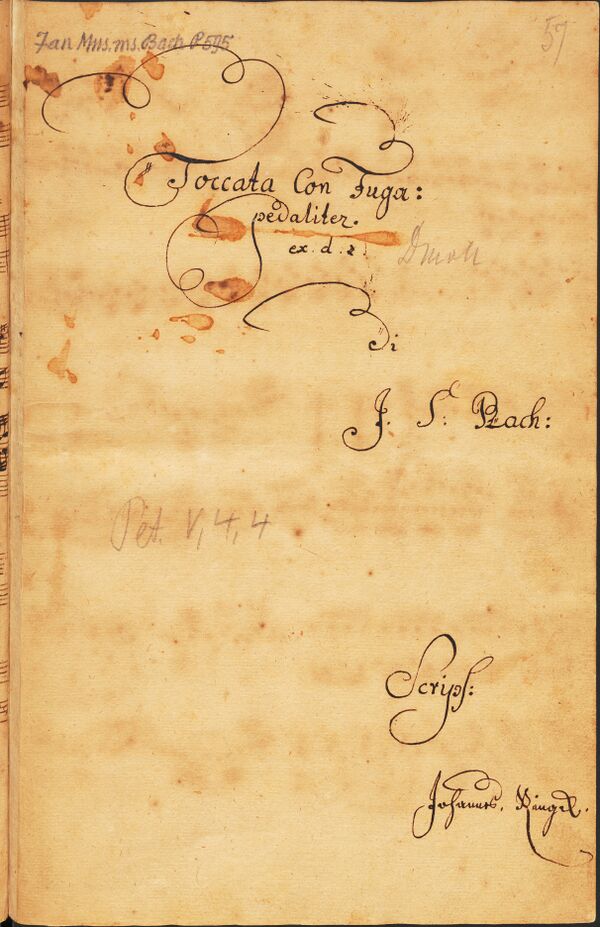 Mus. ms. Bach P 595
57
Toccata Con Fuga:
pedaliter.
ex. d. #.
Dmoll
di
J. S. Bach:
Pet. V, 4, 4
Scrips:
Johannes. Ringk.